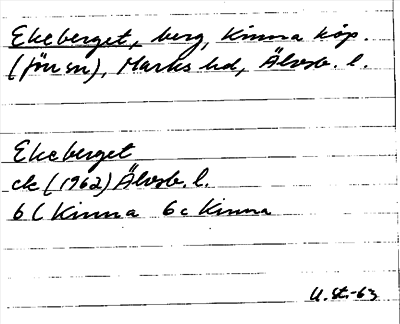 Ekeberget, berg, Kinna köp.
(förs n), Marks hd, Älvsb. l.
Ekeberget
ek (1962) Älvsb. l.
6 C Kinna 6 c Kinna
U. St.-63